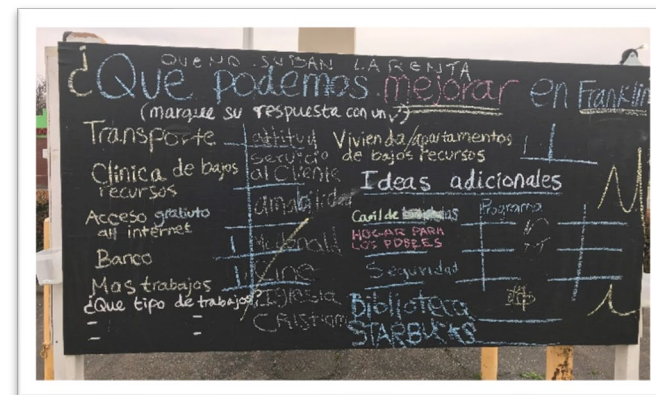 QUE NO SUBAN LA RENTA
¿Que podemos mejorar en Franklin
(marque su respuesta con un ✓)
Transporte
Clinica de bajos
recursos
Acceso gratuto
all internet
Banco
Mas trabajos
¿Que tipo de trabajos?
-
-
-
-
attitud
Servicio
al Cliente
amabilidad
McDonald
Cine
Iglesia
Cristiana
Vivienda/apartamentos
de bajos recursos
Ideas adicionales
Caril de
HOGAR PARA
LOS POBRES
Seguridad
Biblioteca
STARBUCKS
Programa